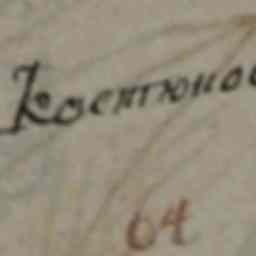 Костюнов
64